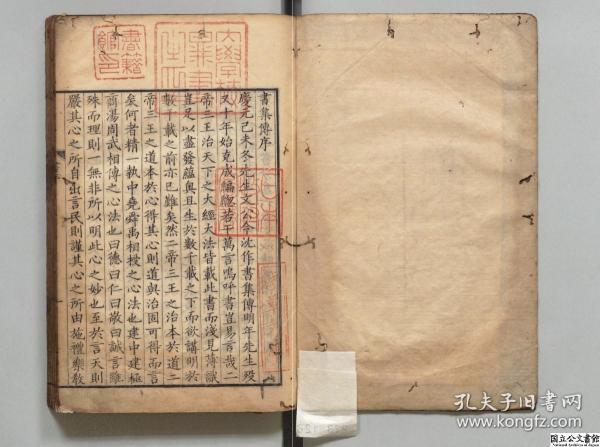 書集傳序
慶元己未冬先生文公令沈作書集傳明年先生歿
又十年始克成編總若干萬言嗚呼書豈易言哉二
帝三王治天下之大經大法皆載此書而淺見薄識
豈足以盡發蘊奧且生於數千載之下而欲講明於
數千載之前亦已難矣然二帝三王之治本於道二
帝三王之道本於心得其心則道與治固可得而言
矣何者精一執中堯舜禹相授之心法也建中建極
商湯周武相傳之心法也曰德曰仁曰敬曰誠言雖
殊而理則一無非所以明此心之妙也至於言天則
嚴其心之所自出言民則謹其心之所由施禮樂教
書籍
館印
孔夫子旧书网
www.kongfz.com
国立公文書館
National Archives of Japan